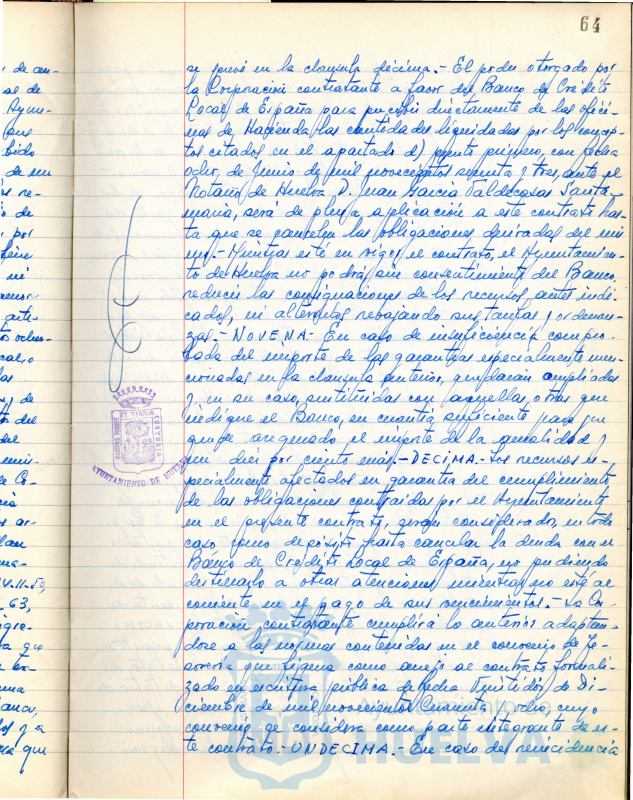 64
se prevé en la clausula décima.- El poder otorgado por
la Corporación contratante a favor del Banco de Crédito
Local de España para percibir directamente de las ofici-
nas de Hacienda las cantidades liquidadas por los concep-
tos citados en el apartado d) punto primero, con fecha
ocho, de Junio de mil novecientos sesenta y tres, ante el
Notario de Huelva D. Juan Garcia Valdecasas Santa-
maria, será de plena aplicación a este contrato has-
ta que se cancelen las obligaciones derivadas del mis
mo.- Mientras esté en vigor el contrato, el Ayuntamien-
to de Huelva no podrá, sin consentimiento del Banco,
reducir las consignaciones de los recursos, antes indi-
cados, ni alterarlos rebajando sus tarifas y ordenan-
zas.- NOVENA.- En caso de insuficiencia compro-
bada del importe de las garantias especialmente men-
cionadas en la clausula anterior, quedarán ampliadas
y, en su caso, sustituidas con aquellas otras que
indique el Banco, en cuantia suficiente para que
quede asegurado el importe de la anualidad y
un diez por ciento más.- DECIMA.- Los recursos es-
pecialmente afectados en garantia del cumplimiento
de las obligaciones contraidas por el Ayuntamiento
en el presente contrato, serán considerados, en todo
caso como depósito hasta cancelar la deuda con el
Banco de Crédito Local de España, no pudiendo
destinarlo a otras atenciones mientras no esté al
corriente en el pago de sus vencimientos.- La Cor-
poración contratante cumplirá lo anterior adaptan-
dose a las normas contenidas en el convenio de Te-
soreria que figura como anejo al contrato formali-
zado en escritura pública de fecha Veintidos de Di-
ciembre de mil novecientos Cuarenta y ocho, cuyo
convenio se considera como parte integrante de es-
te contrato.- UNDECIMA.- En caso de reincidencia
AYUNTAMIENTO DE HUELVA
HUELVA